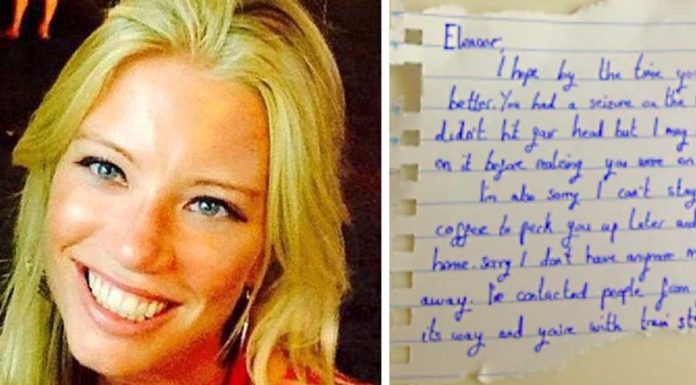 Eleanor,
I hope by the time yo
better. You had a seizure on the
didn't hit your head but I may
on it before realising you were on
I'm also sorry I can't stay
coffee to perk you up later and
home. Sorry I don't have anymore m
away. I've contacted people from
its way and you're with train st